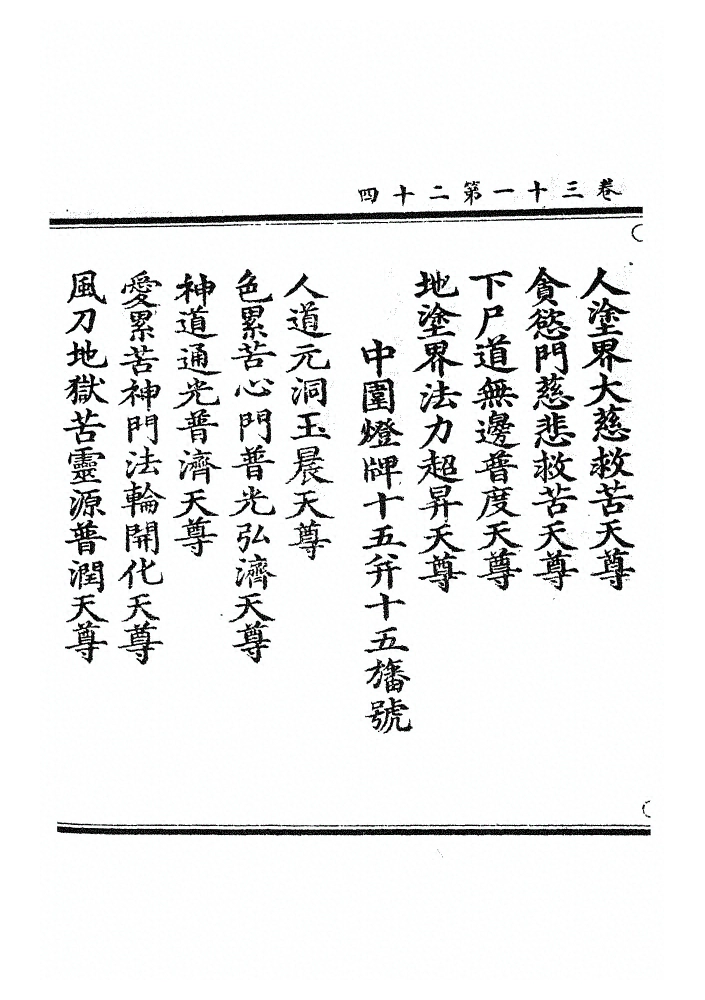 卷三十一第二十四
人塗界大慈救苦天尊
貪慾門慈悲救苦天尊
下尸道無邊普度天尊
地塗界法力超昇天尊
中圍燈牌十五并十五旛號
人道元洞玉晨天尊
色累苦心門普光弘濟天尊
神道通光普濟天尊
愛累苦神門法輪開化天尊
風刀地獄苦靈源普潤天尊